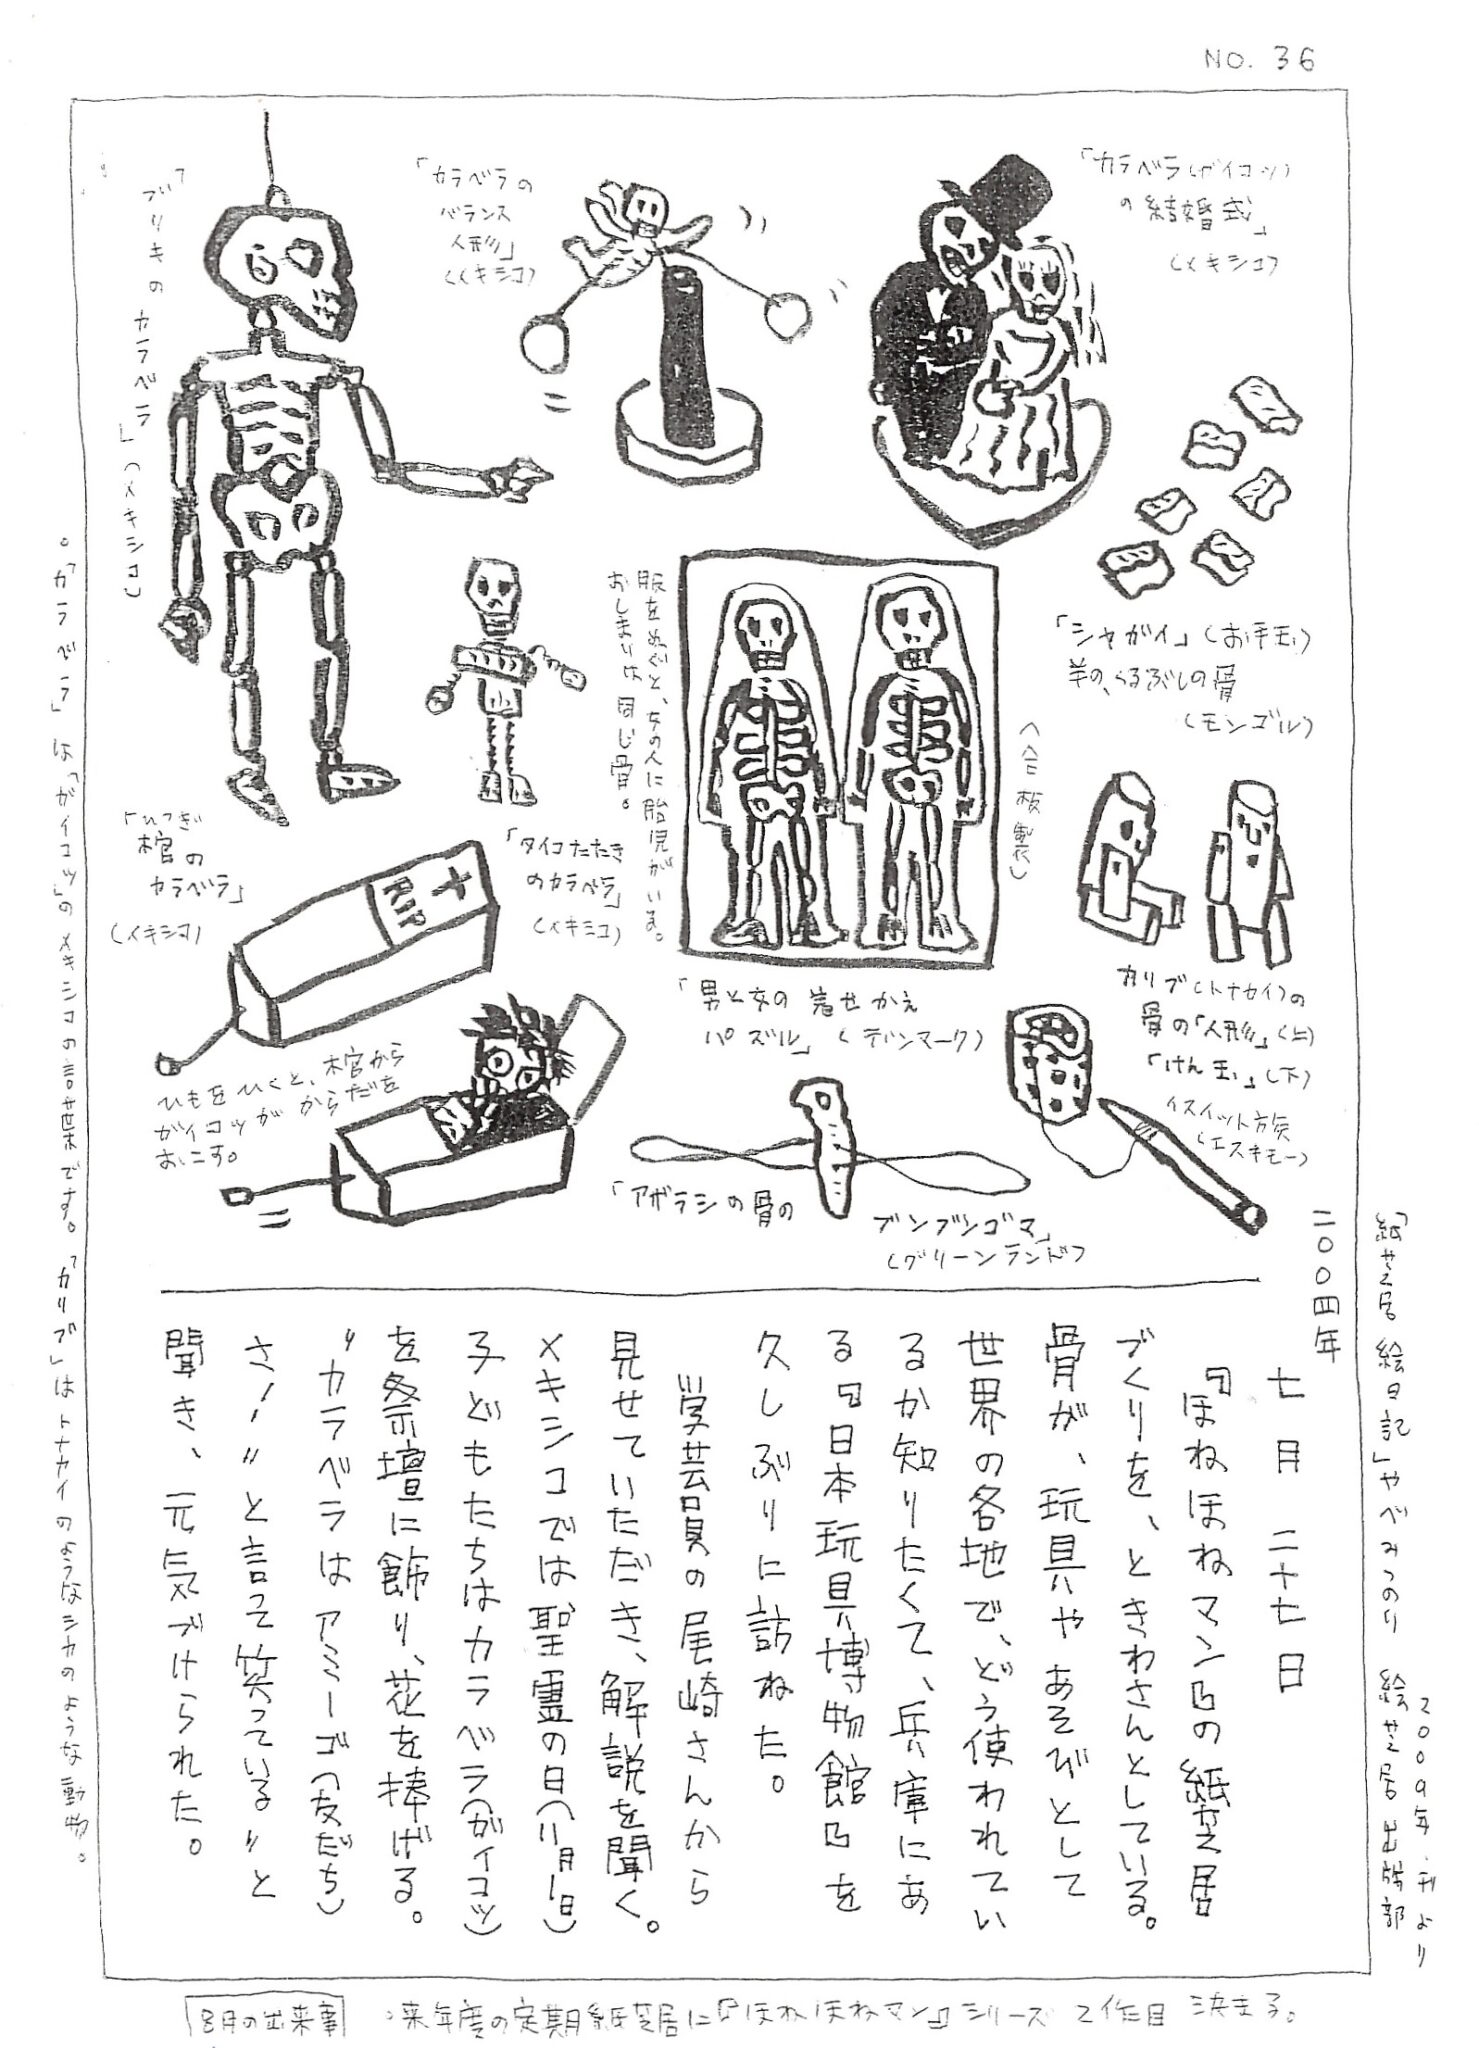 NO. 36
「カラベラ(ガイコツ)
の結婚式」
(メキシコ)
「カラベラの
バランス
人形」
(メキシコ)
「ブリキのカラベラ」(メキシコ)
「シャガイ」(お手玉)
羊の、くるぶしの骨
(モンゴル)
服をぬぐと、女の人に胎児がいる。
おしまいは同じ骨。
(合板製)
「男と女の着せかえ
パズル」(デンマーク)
「タイコたたき
のカラベラ」
(メキシコ)
「ひつぎ
棺の
カラベラ」
(メキシコ)
RIP
ひもをひくと、棺から
ガイコツがからだを
おこす。
カリブ(トナカイ)の
骨の「人形」(上)
「けん玉」(下)
イヌイット族
(エスキモー)
「アザラシの骨の
ブンブンゴマ」
(グリーンランド)
二〇〇四年
七月二十七日
『ほねほねマン』の紙芝居
づくりを、ときわさんとしている。
骨が、玩具やあそびとして
世界の各地で、どう使われてい
るか知りたくて、兵庫にあ
る『日本玩具博物館』を
久しぶりに訪ねた。
学芸員の尾崎さんから
見せていただき、解説を聞く。
メキシコでは聖霊の日(11月1日)
子どもたちはカラベラ(ガイコツ)
を祭壇に飾り、花を捧げる。
“カラベラはアミーゴ(友だち)
さ!”と言って笑っている”と
聞き、元気づけられた。
「紙芝居絵日記」やべみつのり 絵芝居出版部
2009年刊より
。「カラベラ」は「ガイコツ」のメキシコの言葉です。「カリブ」はトナカイのようなシカのような動物。
8月の出来事 ・来年度の定期紙芝居に『ほねほねマン』シリーズ2作目 決まる。